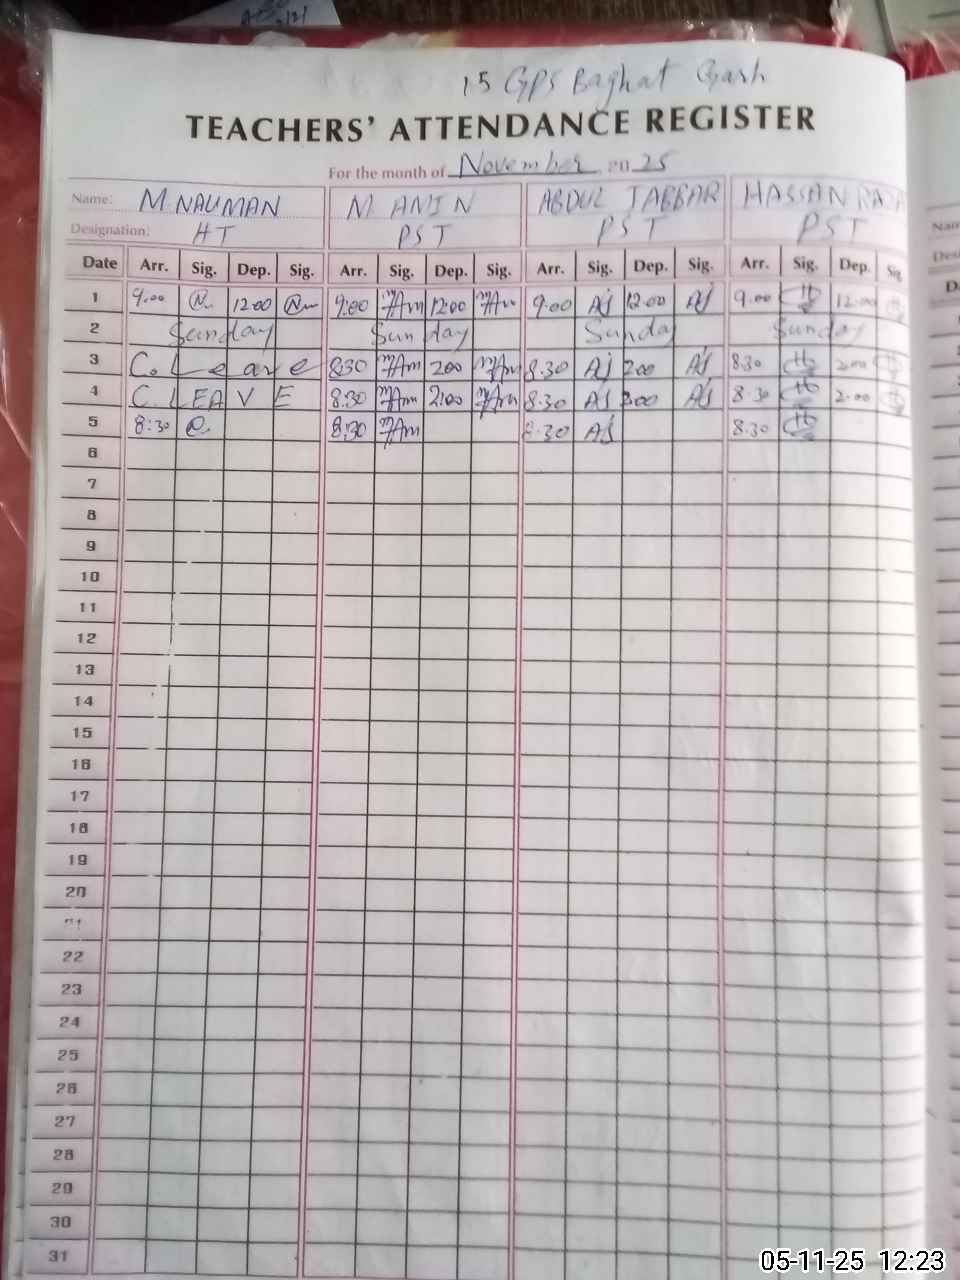 15 GPS Baghat Garh
TEACHERS' ATTENDANCE REGISTER
For the month of November 2025
Name: M. NAUMAN M AMIN ABDUL JABBAR HASSAN RAZA
Designation: HT PST PST PST
Date Arr. Sig. Dep. Sig. Arr. Sig. Dep. Sig. Arr. Sig. Dep. Sig. Arr. Sig. Dep. Sig.
1 9:00 12:00 9:00 12:00 9:00 AJ 12:00 AJ 9:00 12:00
2 Sunday Sunday Sunday Sunday
3 C. Leave 8:30 2:00 8:30 AJ 2:00 AJ 8:30 2:00
4 C. LEAVE 8:30 2:00 8:30 AJ 2:00 AJ 8:30 2:00
5 8:30 8:30 8:30 AJ 8:30
6
7
8
9
10
11
12
13
14
15
16
17
18
19
20
21
22
23
24
25
26
27
28
29
30
31
05-11-25 12:23